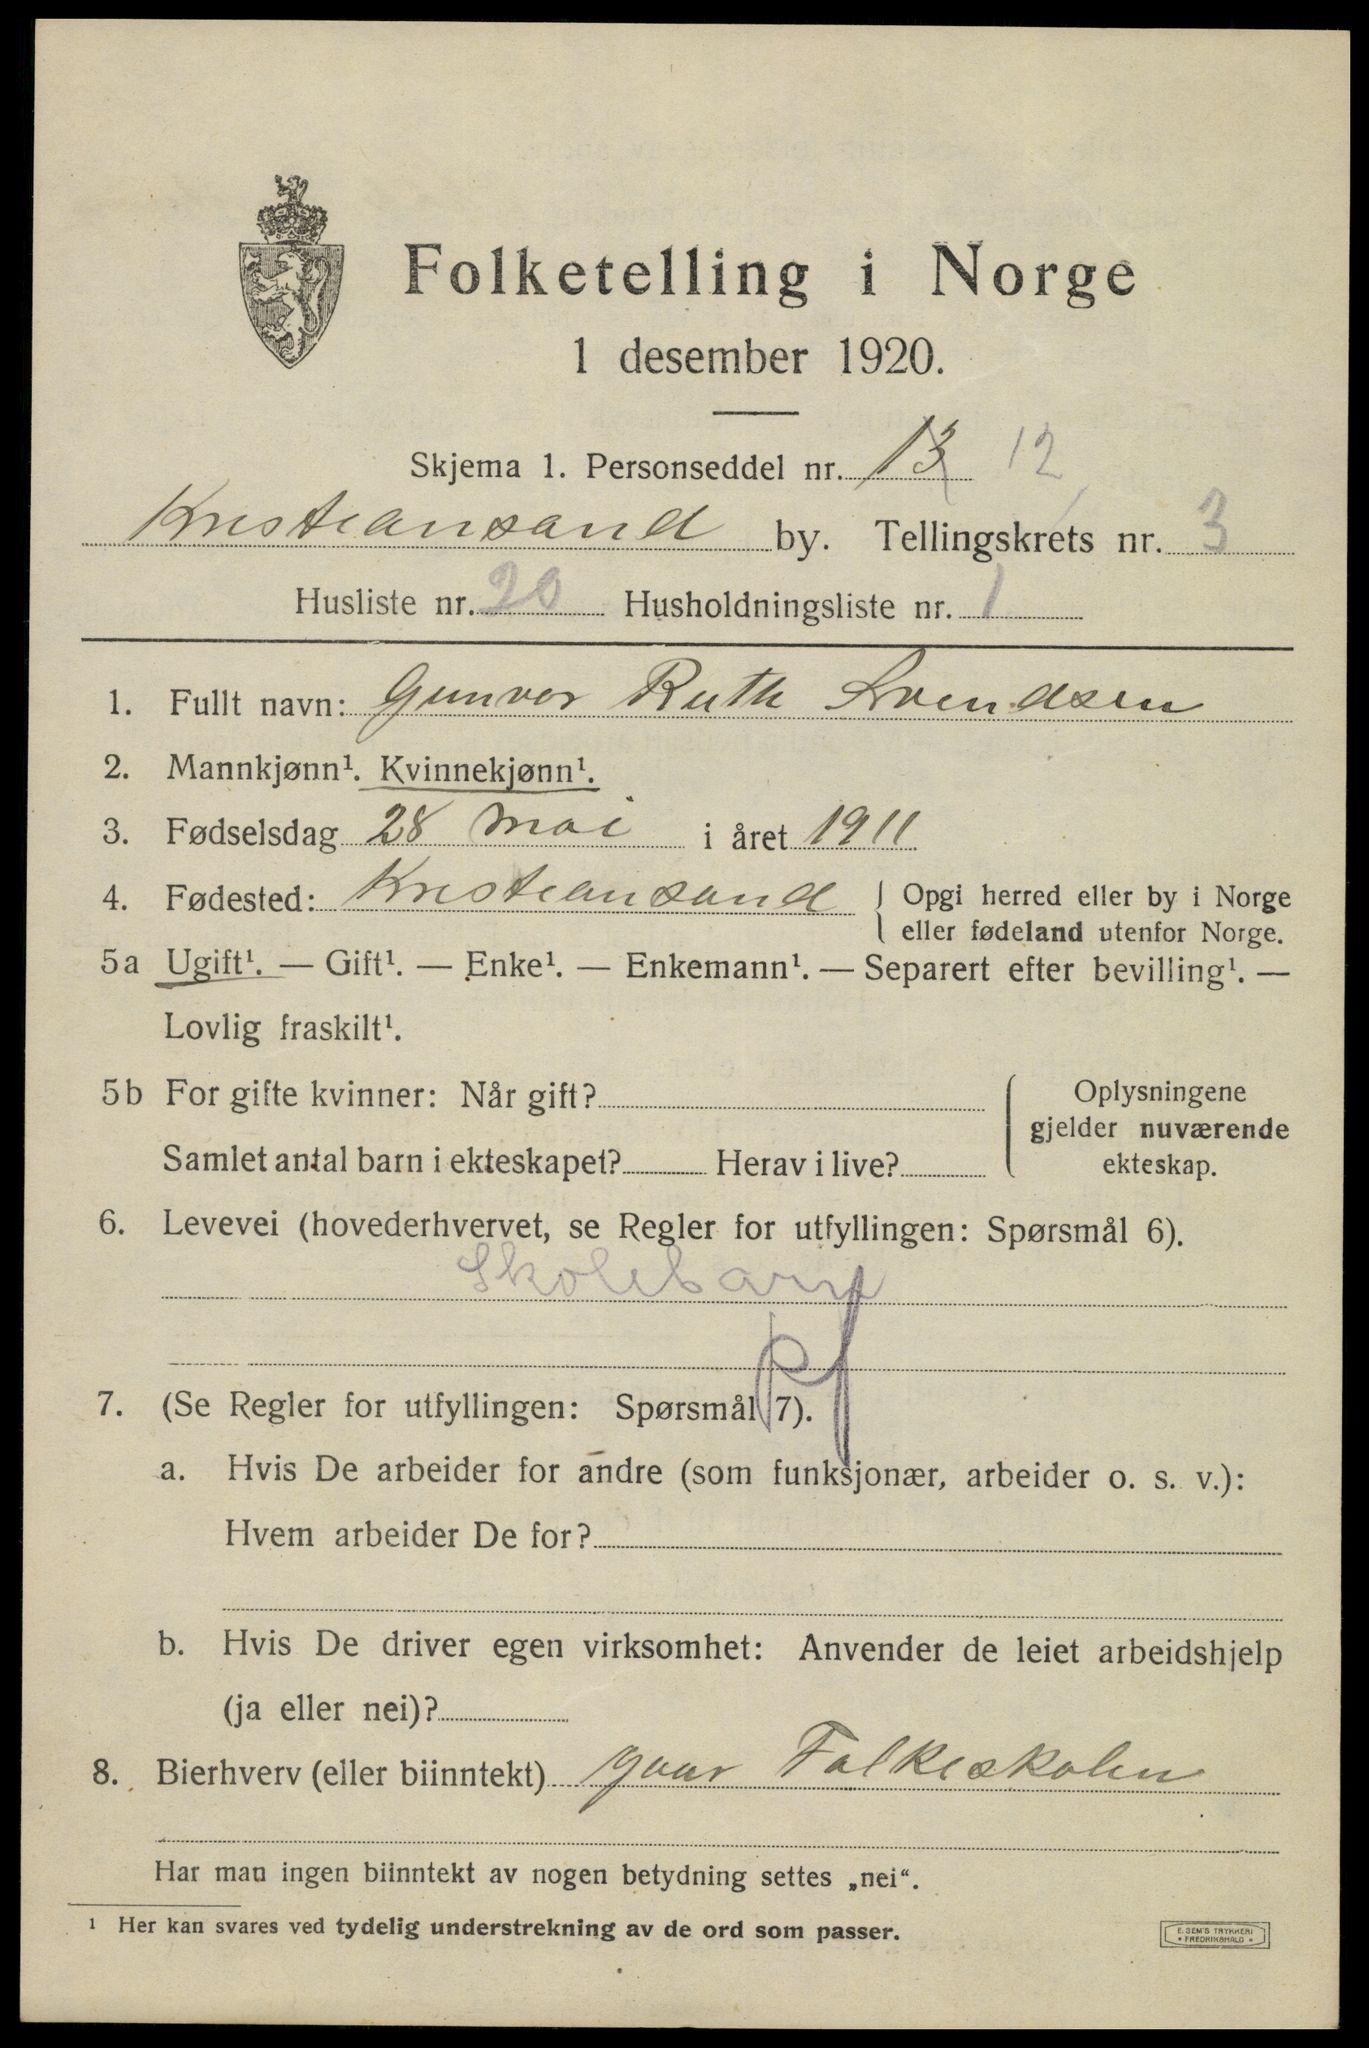 Folketelling i Norge
1 desember 1920.
Skjema 1. Personseddel nr. 13 12
Kristiansand by. Tellingskrets nr. 3
Husliste nr. 20 Husholdningsliste nr. 1
1. Fullt navn: Gunvor Ruth Svendsen
2. Mannkjønn¹. Kvinnekjønn¹.
3. Fødselsdag 28 mai i året 1911
4. Fødested: Kristiansand { Opgi herred eller by i Norge
eller fødeland utenfor Norge.
5a Ugift¹. — Gift¹. — Enke¹. — Enkemann¹. — Separert efter bevilling¹. —
Lovlig fraskilt¹.
5b For gifte kvinner: Når gift? { Oplysningene
gjelder nuværende
Samlet antal barn i ekteskapet? Herav i live? ekteskap.
6. Levevei (hovederhvervet, se Regler for utfyllingen: Spørsmål 6).
Skolebarn
pf
7. (Se Regler for utfyllingen: Spørsmål 7).
a. Hvis De arbeider for andre (som funksjonær, arbeider o. s. v.):
Hvem arbeider De for?
b. Hvis De driver egen virksomhet: Anvender de leiet arbeidshjelp
(ja eller nei)?
8. Bierhverv (eller biinntekt) gaar Folkeskolen
Har man ingen biinntekt av nogen betydning settes „nei“.
¹ Her kan svares ved tydelig understrekning av de ord som passer.
E. SEM'S TRYKKERI
• FREDRIKSHALD •